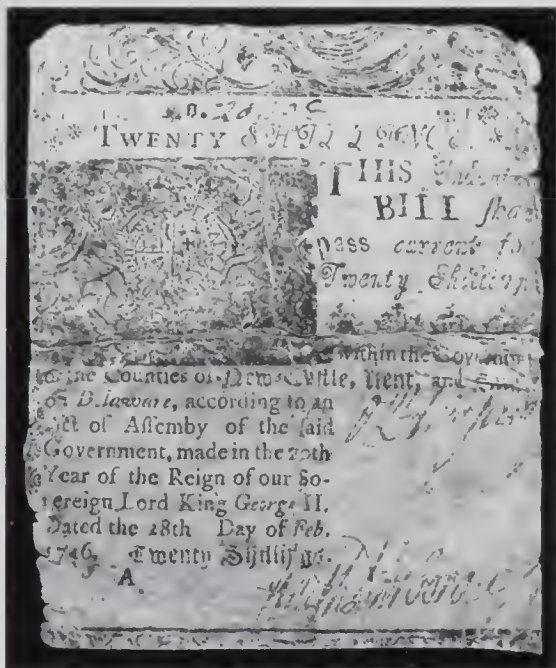 TWENTY SHILLINGS
THIS Indented
BILL shall
pass current for
Twenty Shillings
within the Governm
the Counties of New-Castle, Kent, and
on Delaware, according to an
Act of Assemby of the said
Government, made in the 20th
Year of the Reign of our So-
vereign Lord King George II.
Dated the 28th Day of Feb.
1746 Twenty Shillings.
A